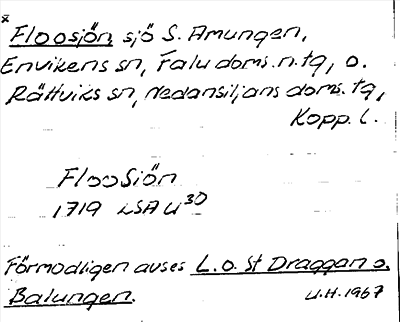 x
Floosjön sjö S. Amungen,
Envikens sn, Falu doms.n.tg, o.
Rättviks sn, Nedansiljans doms.tg,
Kopp. l.
FlooSiön
1719 LSA U30
Förmodligen avses L. o. St Draggan o.
Balungen.
U.H. 1967